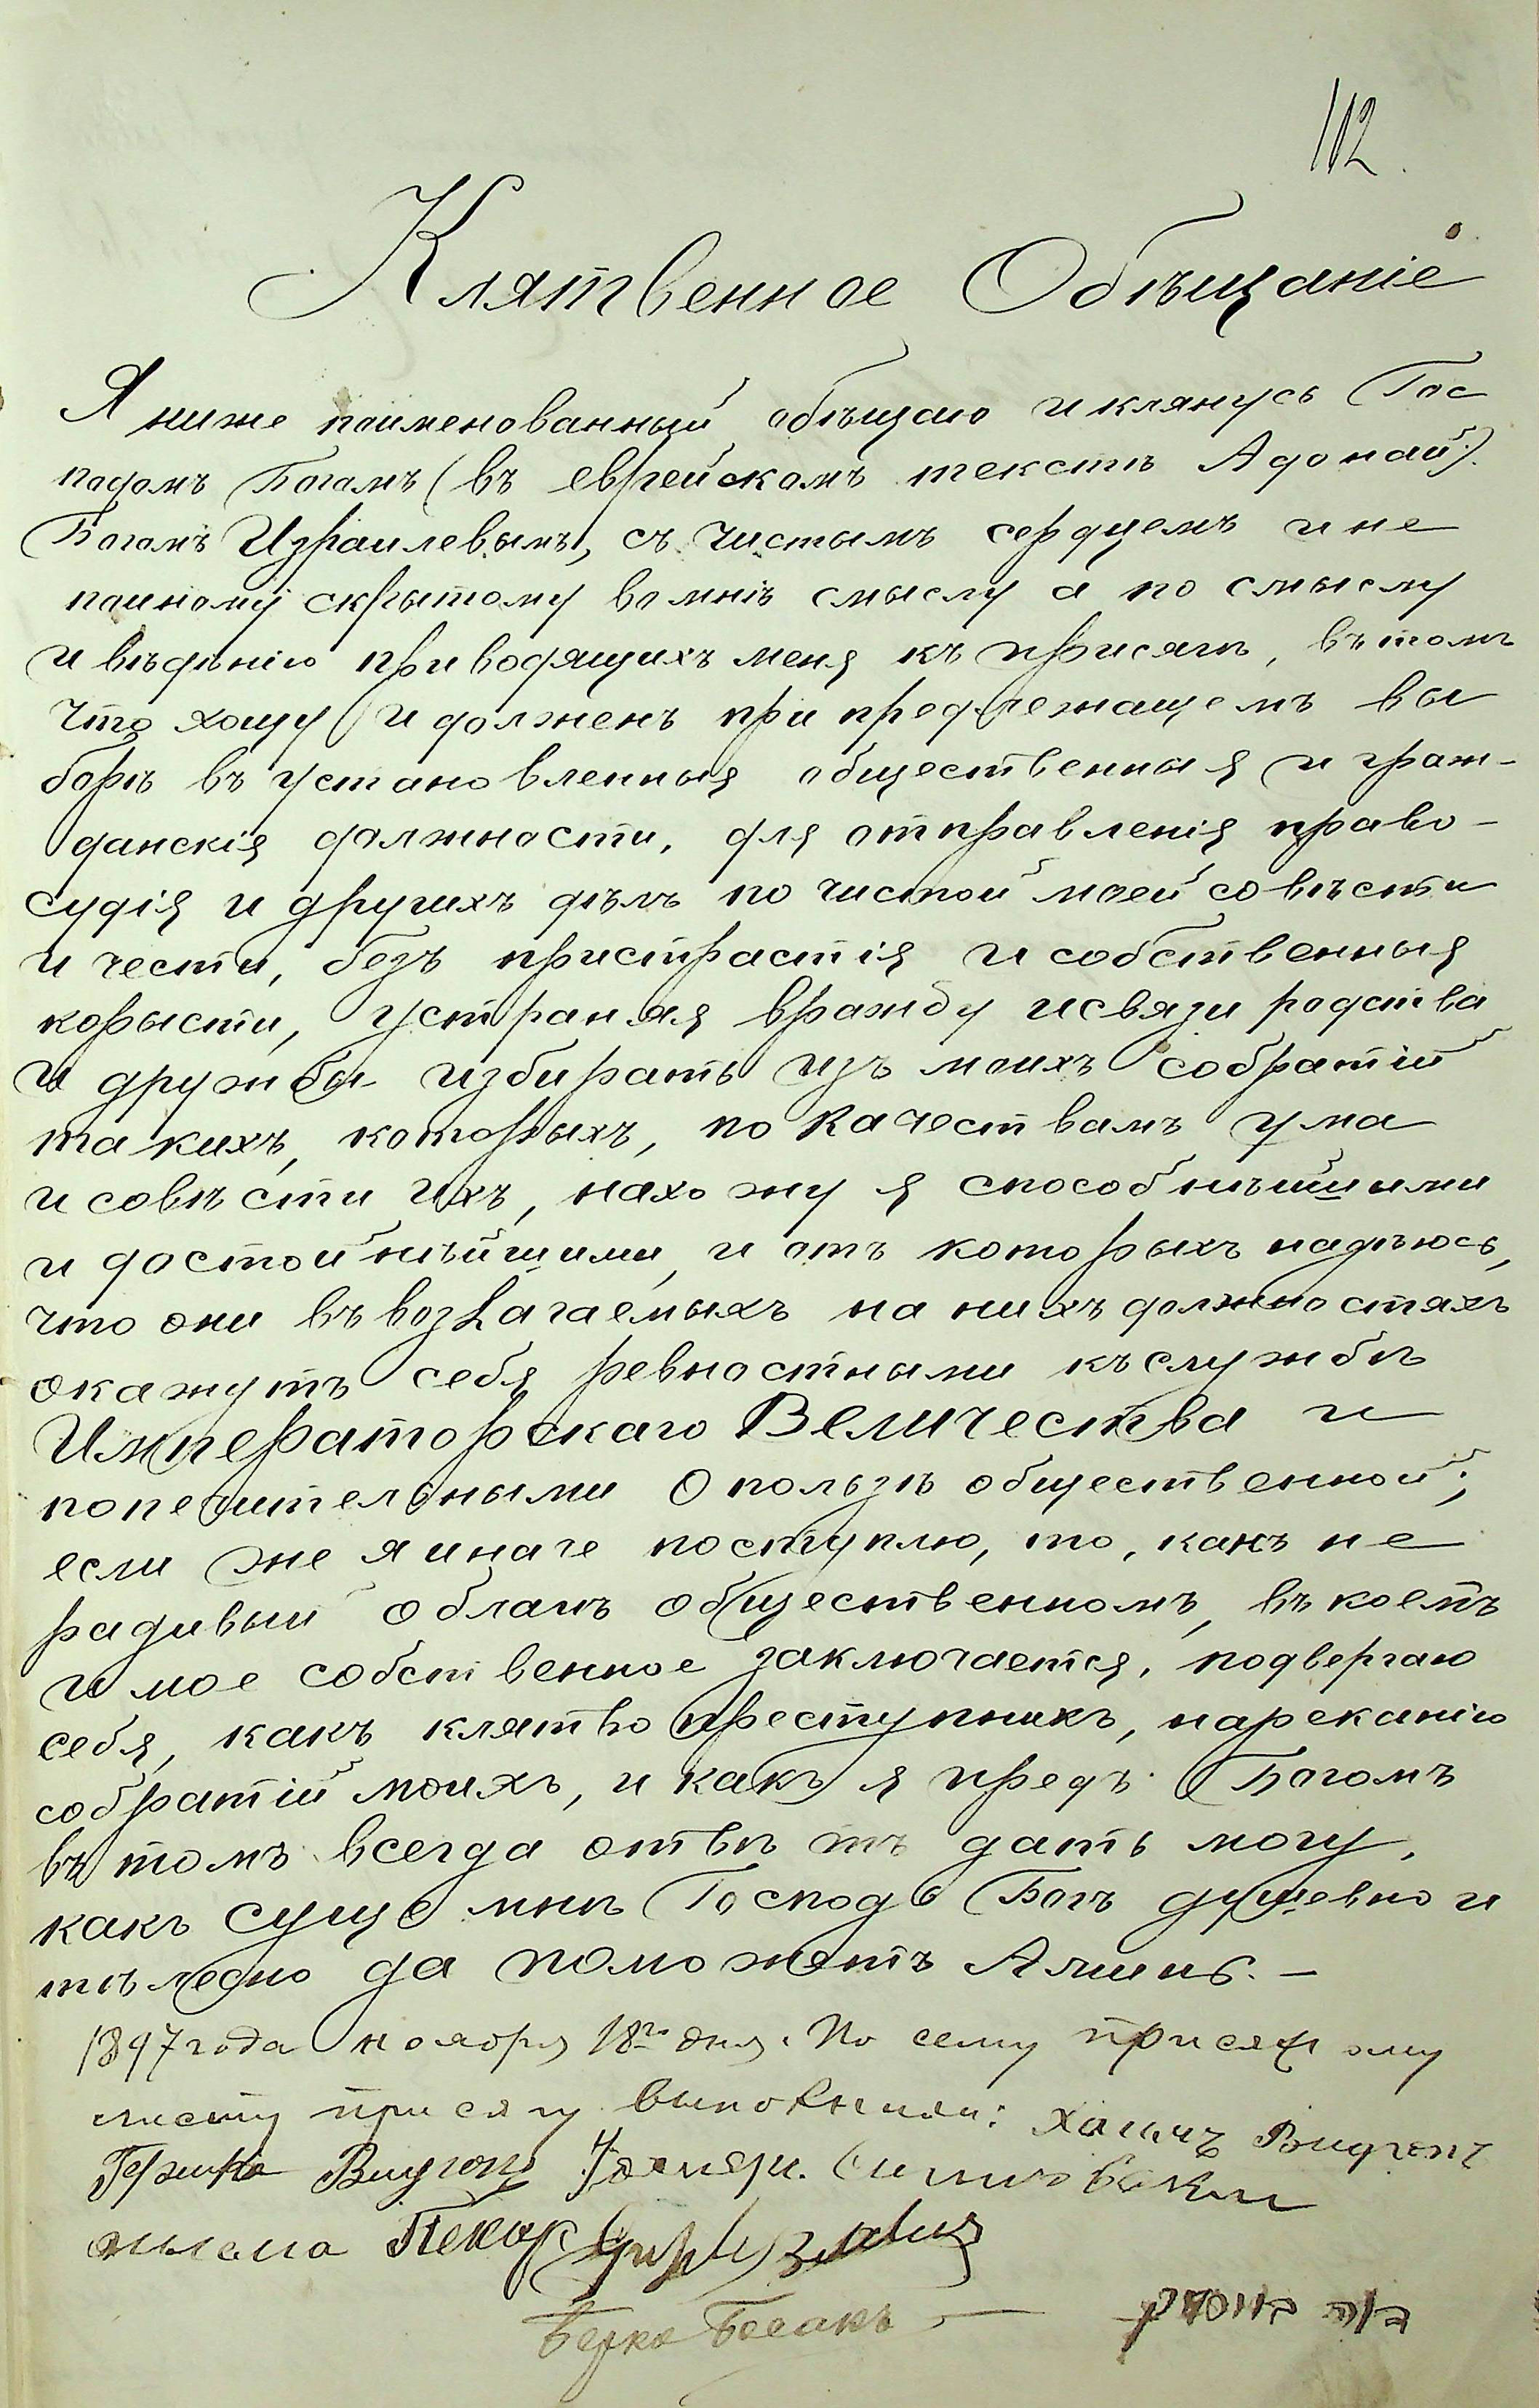 112.
Клятвенное Обѣщаніе
Я ниже поименованный обѣщаю и клянусь Гос
подомъ Богомъ (въ еврейскомъ текстѣ Адонай).
Богомъ Израилевымъ, съ чистымъ сердцемъ и не
поиному скрытому во мнѣ смыслу а по смыслу
и вѣдѣнію приводящихъ меня къ присягѣ, въ томъ
что хощу и долженъ при предлежащемъ вы
борѣ въ установленныя общественныя и граж-
данскія должности, для отправленія право-
судія и другихъ дѣлъ по чистой моей совѣсти
и чести, безъ пристрастія и собственныя
корысти, устраняя вражбу и связи родства
и дружбы избирать изъ моихъ собратій
такихъ, которыхъ, по качествамъ ума
и совѣсти ихъ, нахожу я способнѣйшими
и достойнѣйшими, и отъ которыхъ надѣюсь,
что они въ возлагаемыхъ на нихъ должностяхъ
окажутъ себя ревностными къ службѣ
Императорскаго Величества и
попечительными о пользѣ общественной;
если же я иначе поступлю, то, какъ не
радивый о благѣ общественномъ, въ коемъ
и мое собственное заключается, подвергаю
себя, какъ клятвопреступникъ, нареканію
собратій моихъ, и какъ я предъ Богомъ
въ томъ всегда отвѣтъ дать могу,
какъ суще мнѣ Господь Богъ душевно и
тѣлесно да поможетъ Аминь. —
1897 года ноября 18го дня. По сему присяжному
листу присягу выполнили: Хаимъ
Пекар
Берко Босакъ